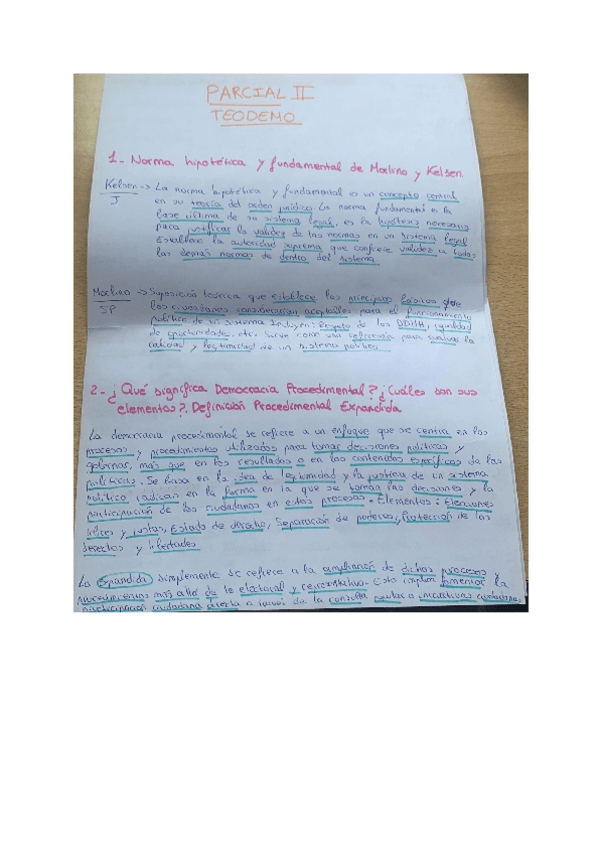 PARCIAL II
TEODEMO
1- Norma hipotética y fundamental de Morlino y Kelsen.
Kelsen -> La norma hipotética y fundamental es un concepto central
J
en su teoría del orden jurídico. La norma fundamental es la
base última de su sistema legal, es la hipótesis necesaria
para justificar la validez de las normas en un sistema legal
Establece la autoridad suprema que confiere validez a todas
las demás normas de dentro del sistema.
Morlino -> Suposición teórica que establece los principios básicos que
SP
los ciudadanos consideran aceptables para el funcionamiento
político de un sistema Incluyen: Respeto de los DDHH, igualdad
de oportunidades, etc. Sirve como una referencia para evaluar la
calidad y legitimidad de un sistema político.
2- ¿Qué significa Democracia Procedimental? ¿Cuáles son sus
elementos?. Definición Procedimental Expandida
La democracia procedimental se refiere a un enfoque que se centra en los
procesos y procedimientos utilizados para tomar decisiones políticas y
gobernar, más que en los resultados o en los contenidos específicos de las
políticas. Se basa en la idea de legitimidad y la justicia de un sistema
político radican en la forma en la que se toman las decisiones y la
participación de los ciudadanos en estos procesos. Elementos: Elecciones
libres y justas, Estado de derecho, Separación de poderes, Protección de los
derechos y libertades
La Expandida simplemente se refiere a la ampliación de dichos procesos y
procedimientos más allá de lo electoral y representativo. Esto implica fomentar la
participación ciudadana directa a través de la consulta iniciativas ciudadanas,